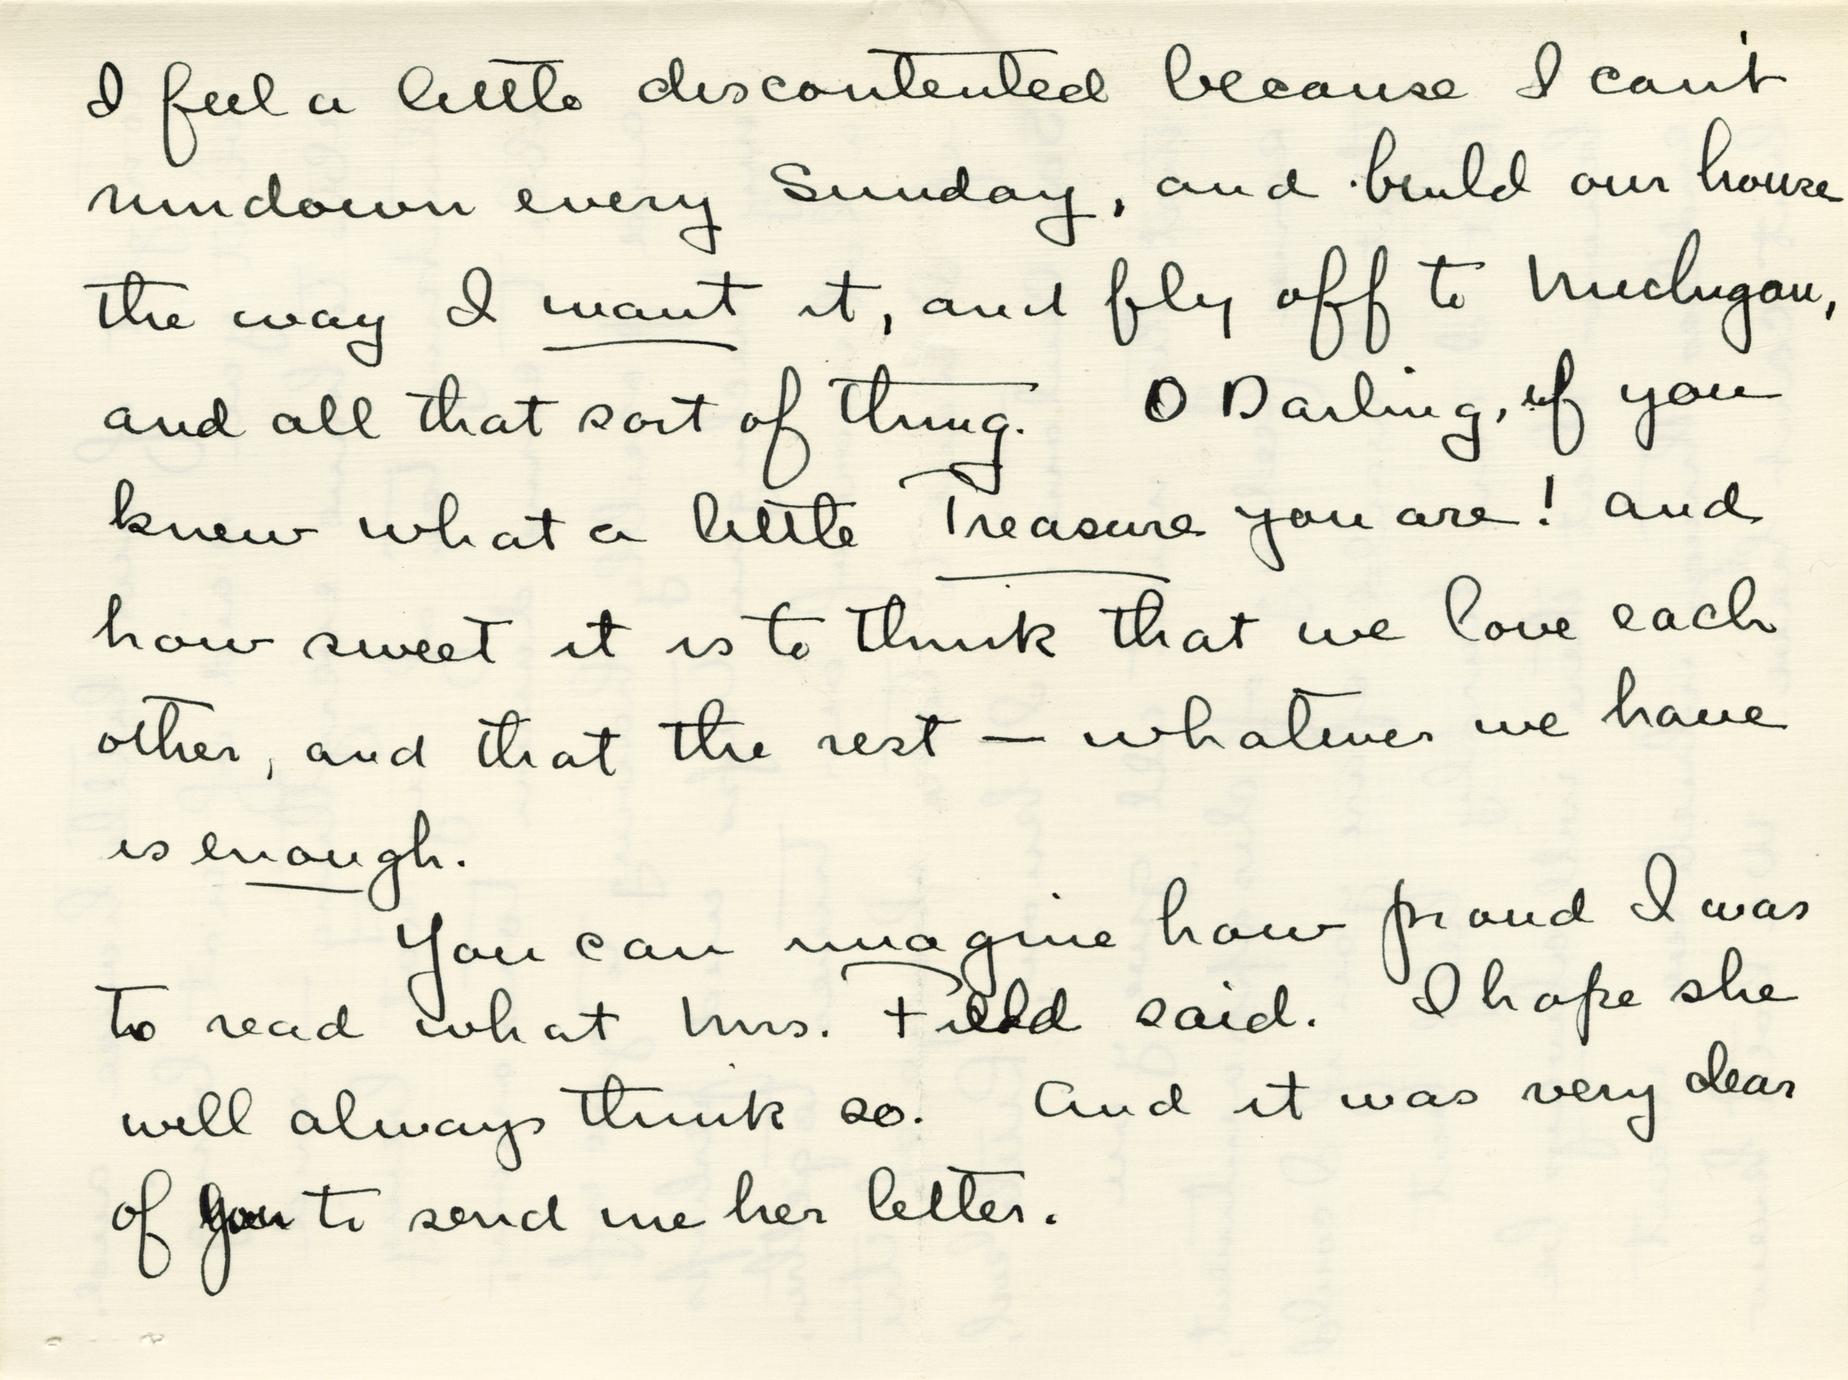 I feel a little discontented because I can't
run down every Sunday, and build our house
the way I want it, and fly off to Michigan,
and all that sort of thing. O Darling, if you
knew what a little Treasure you are! and
how sweet it is to think that we love each
other, and that the rest — whatever we have
is enough.
You can imagine how proud I was
to read what Mrs. Field said. I hope she
will always think so. And it was very dear
of you to send me her letter.